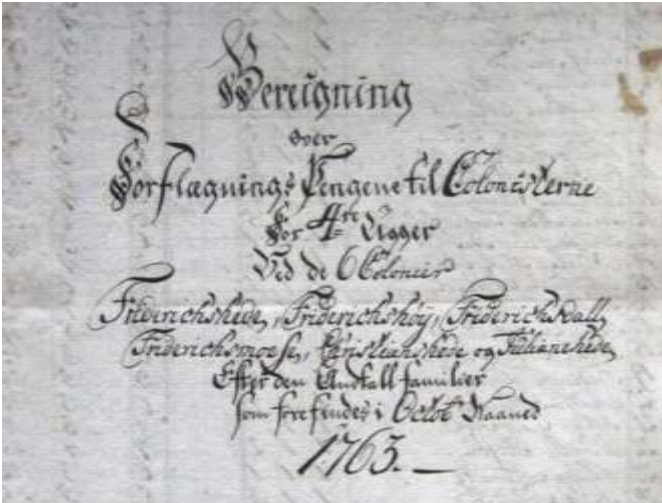 Bereigning
over
Forflægnings Pengene til Colonisterne
for 4re Ugger
Ved de 6 Colonier
Friderichshede, Friderichshøy, Friderichsdall,
Friderichsmose, Christianshede og Julianehede,
Efter den Andtall familier
som forefindes i Octob Maaned
1763.